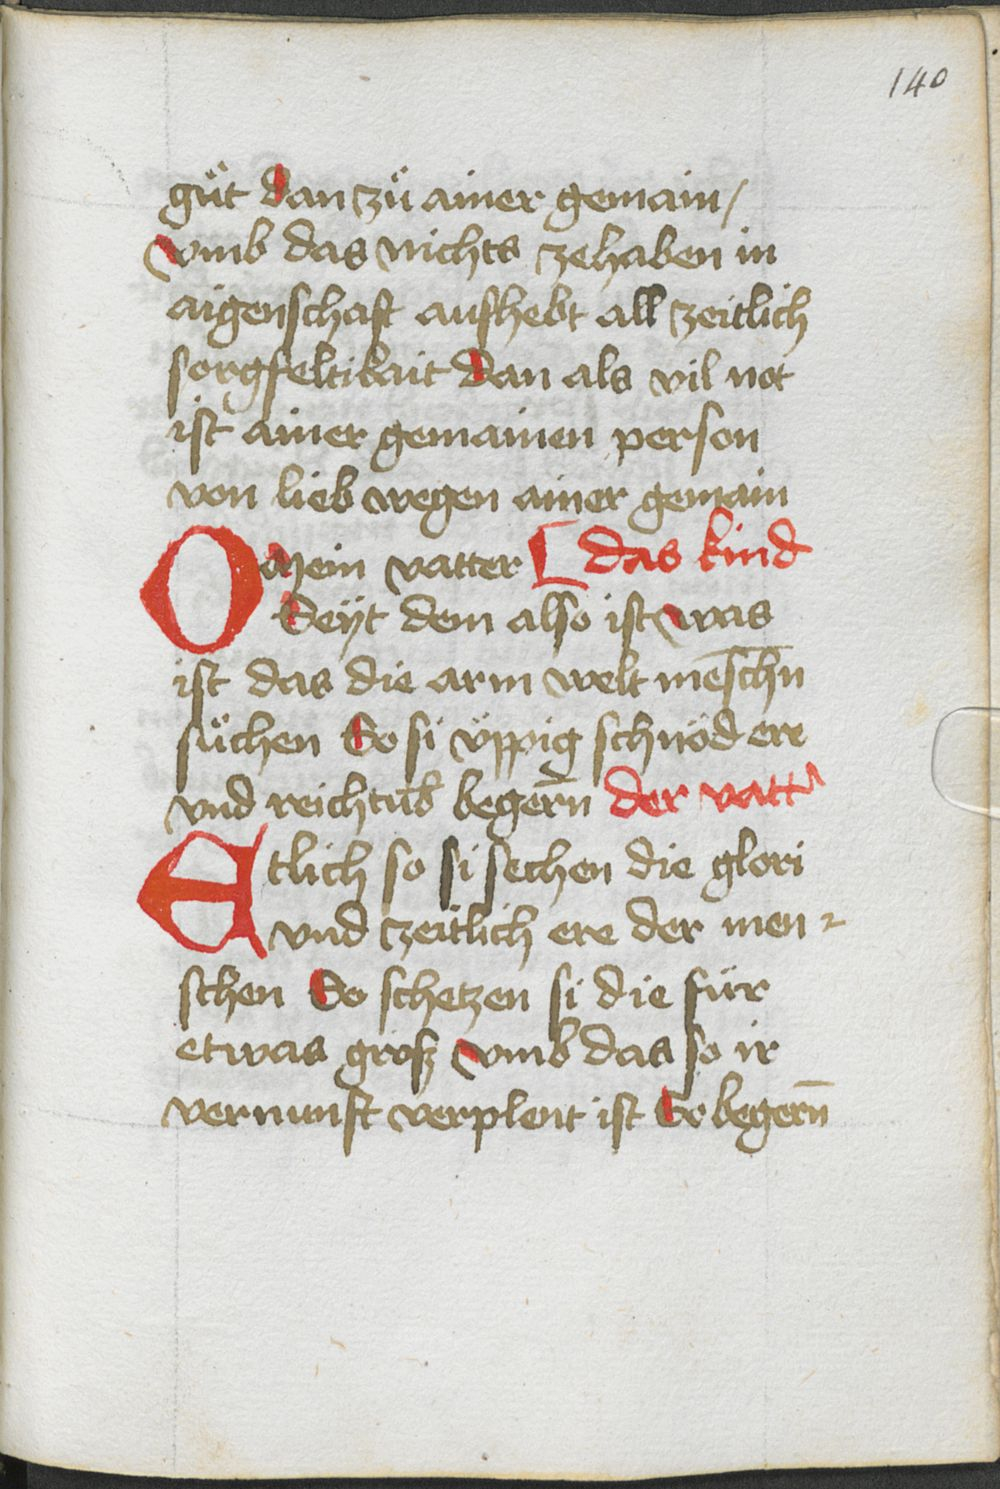 140
guͤt dan zuͤ ainer gemain /
vmb das nichts zehaben in
aigenschaft aufhebt all zeitlich
sorgfeltikait dan als vil not
ist ainer gemainen person
von lieb wegen ainer gemain
O Mein vatter [ das kind
Seyt dem also ist was
ist das die arm welt mēschn
suͤchen So si üppig schnöd ere
vnd reichtūb begern̄ der vatt
Etlich so si sechen die glori
vnd zeitlich ere der men
schen So schetzen si die für
etwas grosz vmb das so ir
vernunft verplent ist Er begern̄